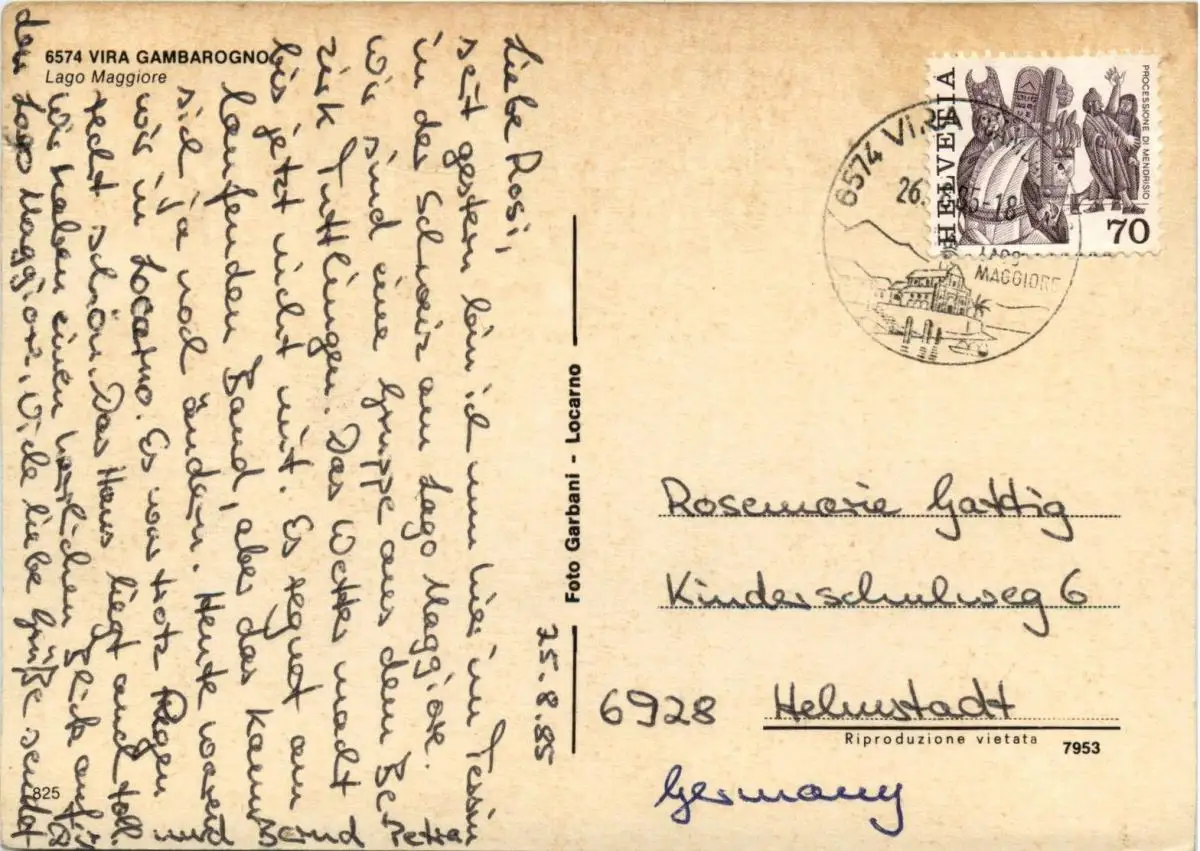 6574 VIRA GAMBAROGNO
Lago Maggiore
25.8.85
Liebe Rosi,
seit gestern bin ich nun hier im Tessin
in der Schweiz am Lago Maggiore.
Wir sind eine Gruppe aus dem Be-
zirk Tuttlingen. Das Wetter macht
bis jetzt nicht mit. Es regnet am
laufenden Band, aber das kann
sich ja noch ändern. Heute waren
wir in Locarno. Es war trotz Regen
recht schön. Das Haus liegt auch toll.
Wir haben einen herrlichen Blick auf
den Lago Maggiore. Viele liebe Grüße sendet
Petra
Bernd
und
Foto Garbani - Locarno
HELVETIA
PROCESSIONE DI MENDRISIO
70
6574 VIRA
26. 85-18
LAGO
MAGGIORE
Rosemarie Gattig
Kinderschulweg 6
6928 Helmstadt
Riproduzione vietata
7953
Germany
825